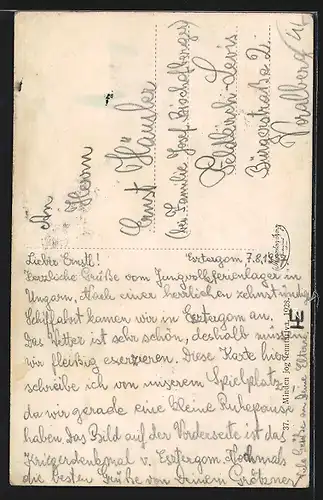 An
Herrn
Ernst Häusler
(bei Familie Josef Bischofberger)
Feldkirch-Levis
Bürgerstraße 2.
Voralberg
Liebe Erndl! Estergom 7.8.
Herzliche Grüße vom Jungvolkferienlager in
Ungarn. Nach einer herrlichen zehnstündigen
Schiffahrt kamen wir in Estergom an.
Das Wetter ist sehr schön, deshalb müssen
wir fleißig exerzieren. Diese Karte hier
schreibe ich von unserem Spielplatz
da wir gerade eine kleine Ruhepause
haben. Das Bild auf der Vorderseite ist das
Kriegerdenkmal v. Estergom. Nochmals
die besten Grüße von Deinem
37. Minden jog fenntartva 1028
Grüße an Deine Eltern